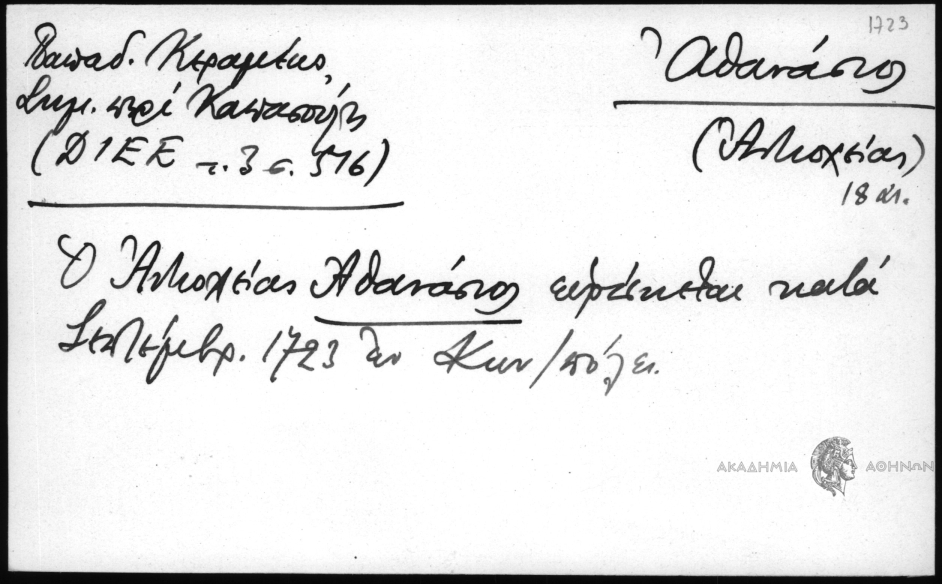 1723
Παπαδ. Κεραμέως,
Σημ. περὶ
(ΔΙΕΕ τ. 3 σ. 516)
Ἀθανάσιος
(Ἀντιοχείας)
18 αι.
Ὁ Ἀντιοχείας Ἀθανάσιος εὑρίσκεται κατά
Σεπτέμβρ. 1723 ἐν Κων/πόλει.
ΑΚΑΔΗΜΙΑ ΑΘΗΝΩΝ